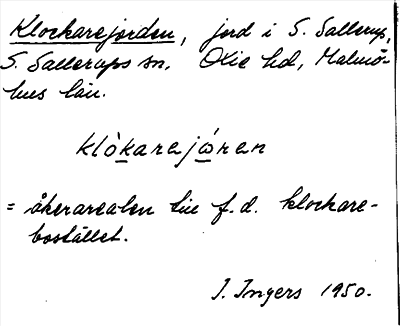 Klockarejorden, jord i S. Sallerup,
S. Sallerups sn. Oxie hd, Malmö-
hus län.
klòkarejóren
= åkerarealen till f.d. klockare-
bostället.
I. Ingers 1950.